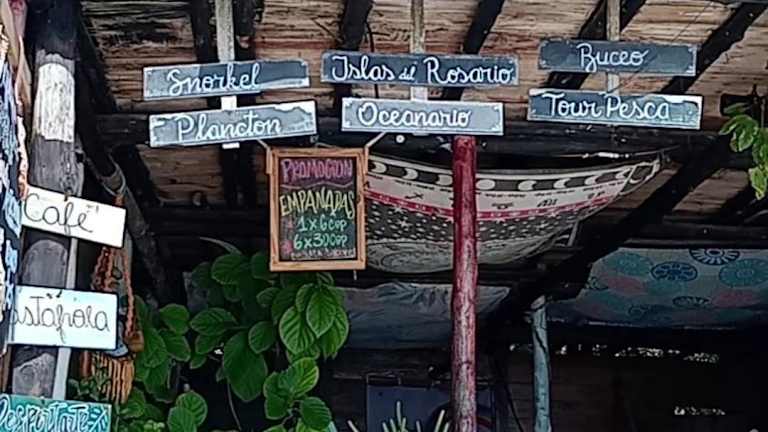 Snorkel
Islas del Rosario
Buceo
Plancton
Oceanario
Tour Pesca
PROMOCION
EMPANADAS
1x6COP
6x30COP
Café